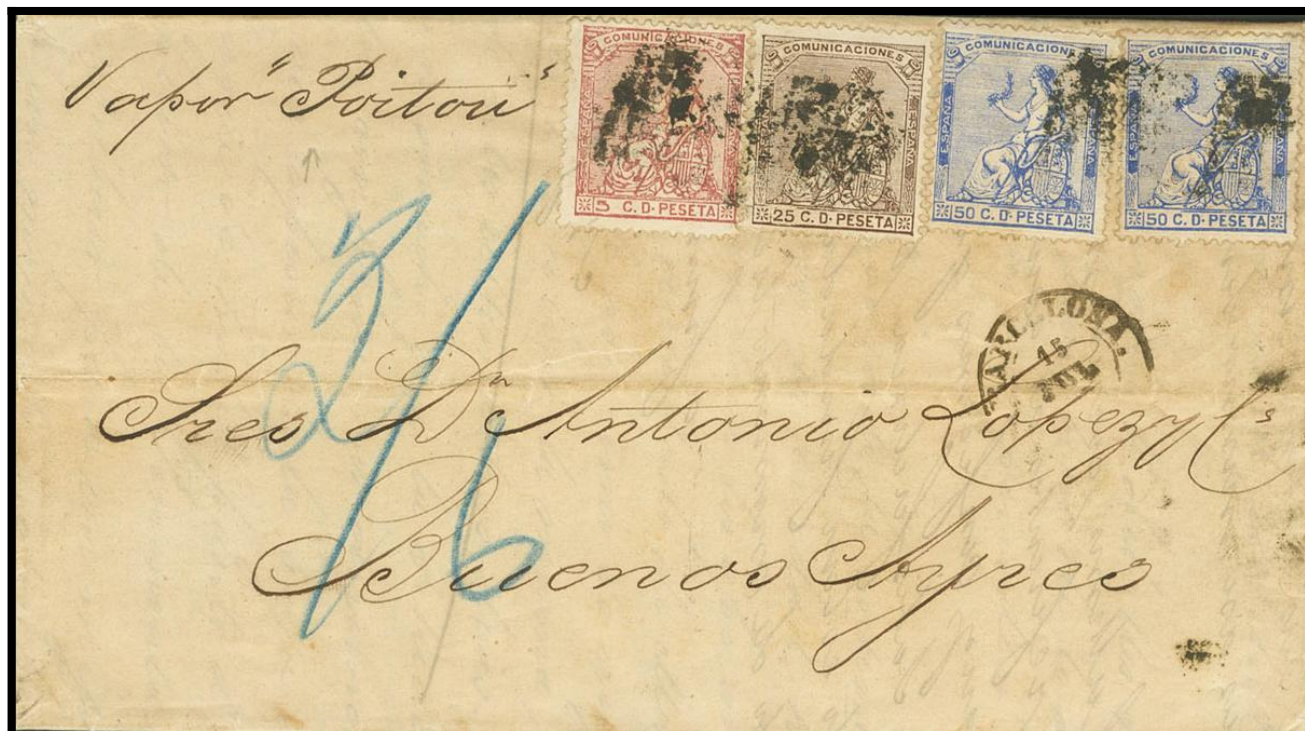 Vapor "Poitou"
COMUNICACIONES
ESPAÑA
5 C. D. PESETA
COMUNICACIONES
ESPAÑA
25 C. D. PESETA
COMUNICACIONES
ESPAÑA ESPAÑA
50 C. D. PESETA
COMUNICACIONES
ESPAÑA
50 C. D. PESETA
BARCELONA.
15
JUL
Sres Dn Antonio Lopez y Cs
Buenos Ayres